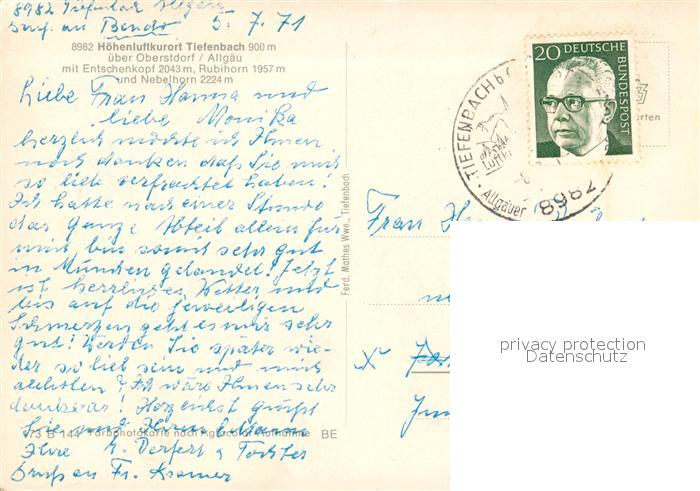 8982 Tiefenbach
Gruß an Bendo 5. 7. 71
8982 Höhenluftkurort Tiefenbach 900 m
über Oberstdorf / Allgäu
mit Entschenkopf 2043 m, Rubihorn 1957 m
und Nebelhorn 2224 m
Liebe Frau Hanna und
liebe Monika
herzlich möchte ich Ihnen
noch danken daß Sie mich
so lieb verfrachtet haben!
Ich hatte nach einer Stunde
das ganze Abteil allein für
mich bin somit sehr gut
in München gelandet! Jetzt
ist herrliches Wetter und
bis auf die jeweiligen
Schmerzen geht es mir sehr
gut! Werden Sie später wie-
der so lieb sein und mich
abholen? Ich wäre Ihnen sehr
dankbar! Herzlichst grüßt
Sie und Ihren
173 B 144 Farbphotokarte nach Agfacolor-Aufnahme BE
Ihre
Gruß an Fr. Kramer
Ferd. Mathes Wwe., Tiefenbach
TIEFENBACH b
Luftk
Allgäuer
8982
20 DEUTSCHE
BUNDESPOST
orten
Frau
privacy protection
Datenschutz